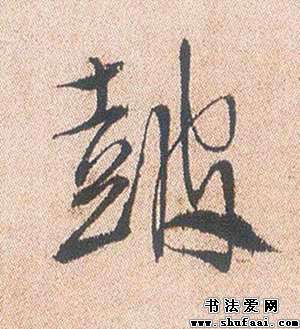 皷
书法爱网
www.shufaai.com